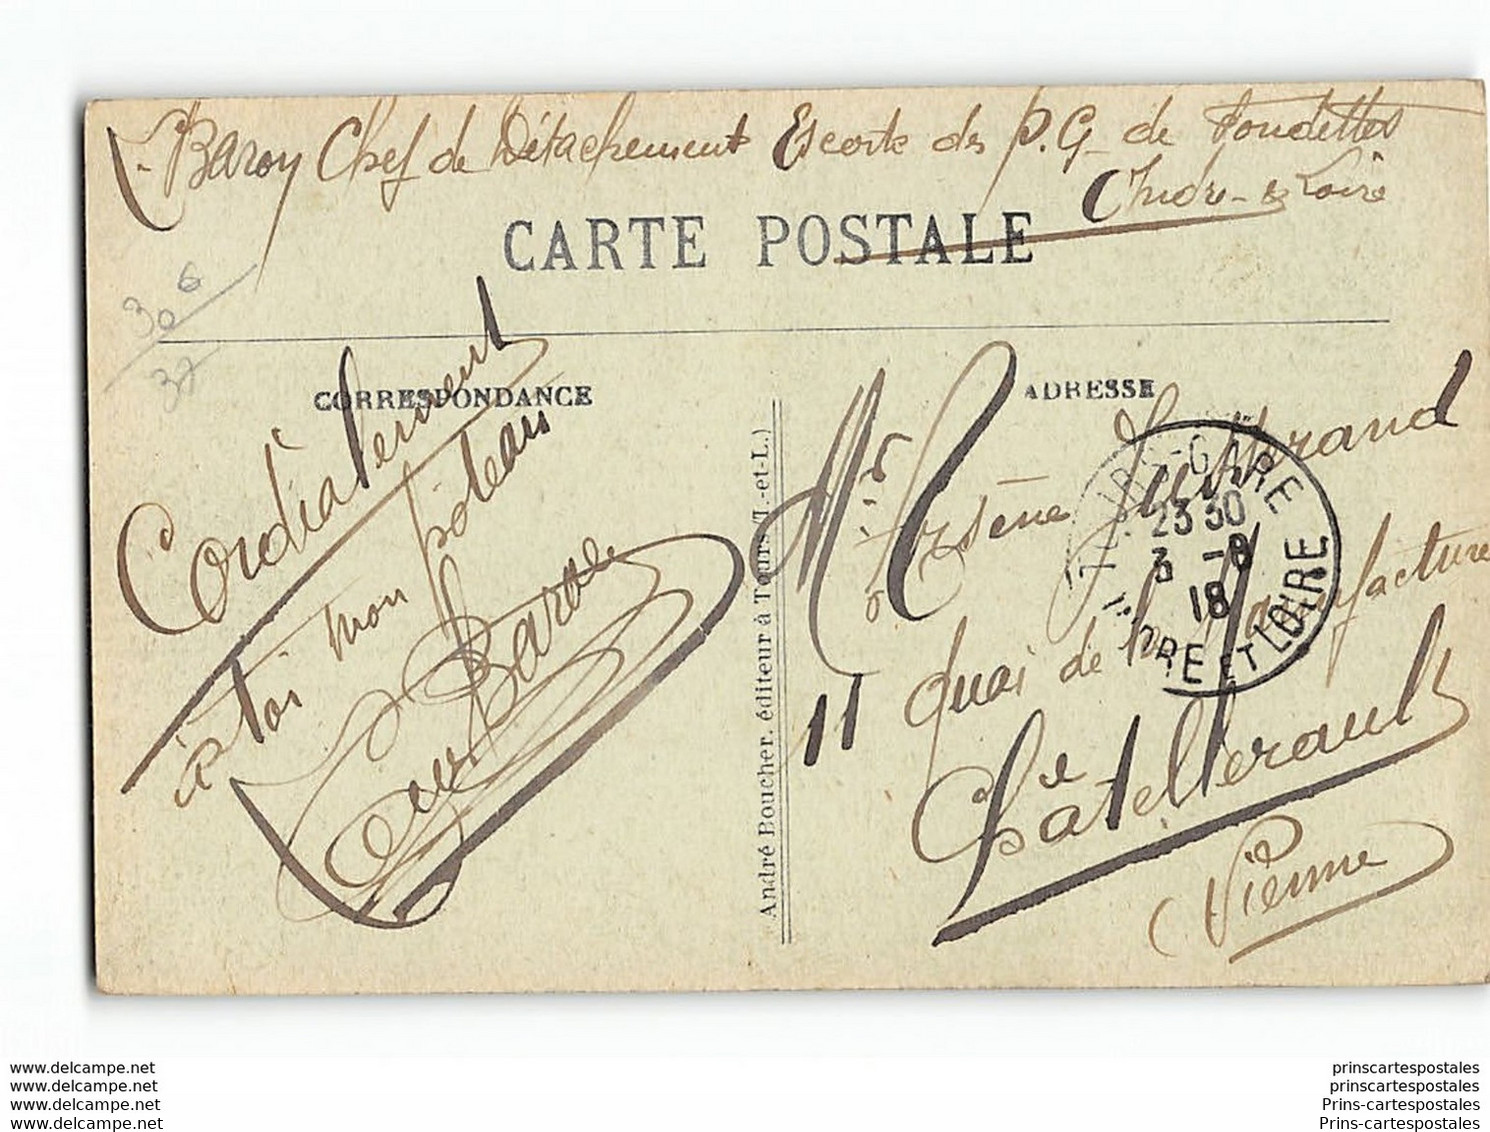 Baron Chef de Détachement Escorte des P.G. de Fondettes
Indre-&-Loire
CARTE POSTALE
306
37
CORRESPONDANCE
Cordialement
à toi mon poteau
Baron
André Boucher, éditeur à Tours (I.-et-L.)
ADRESSE
Mr Arsène
11 Quai de la Manufacture
Châtellerault
Vienne
TOURS-GARE
23 30
3 -8
18
INDRE ET LOIRE
www.delcampe.net
www.delcampe.net
www.delcampe.net
www.delcampe.net
prinscartespostales
prinscartespostales
Prins-cartespostales
Prins-cartespostales